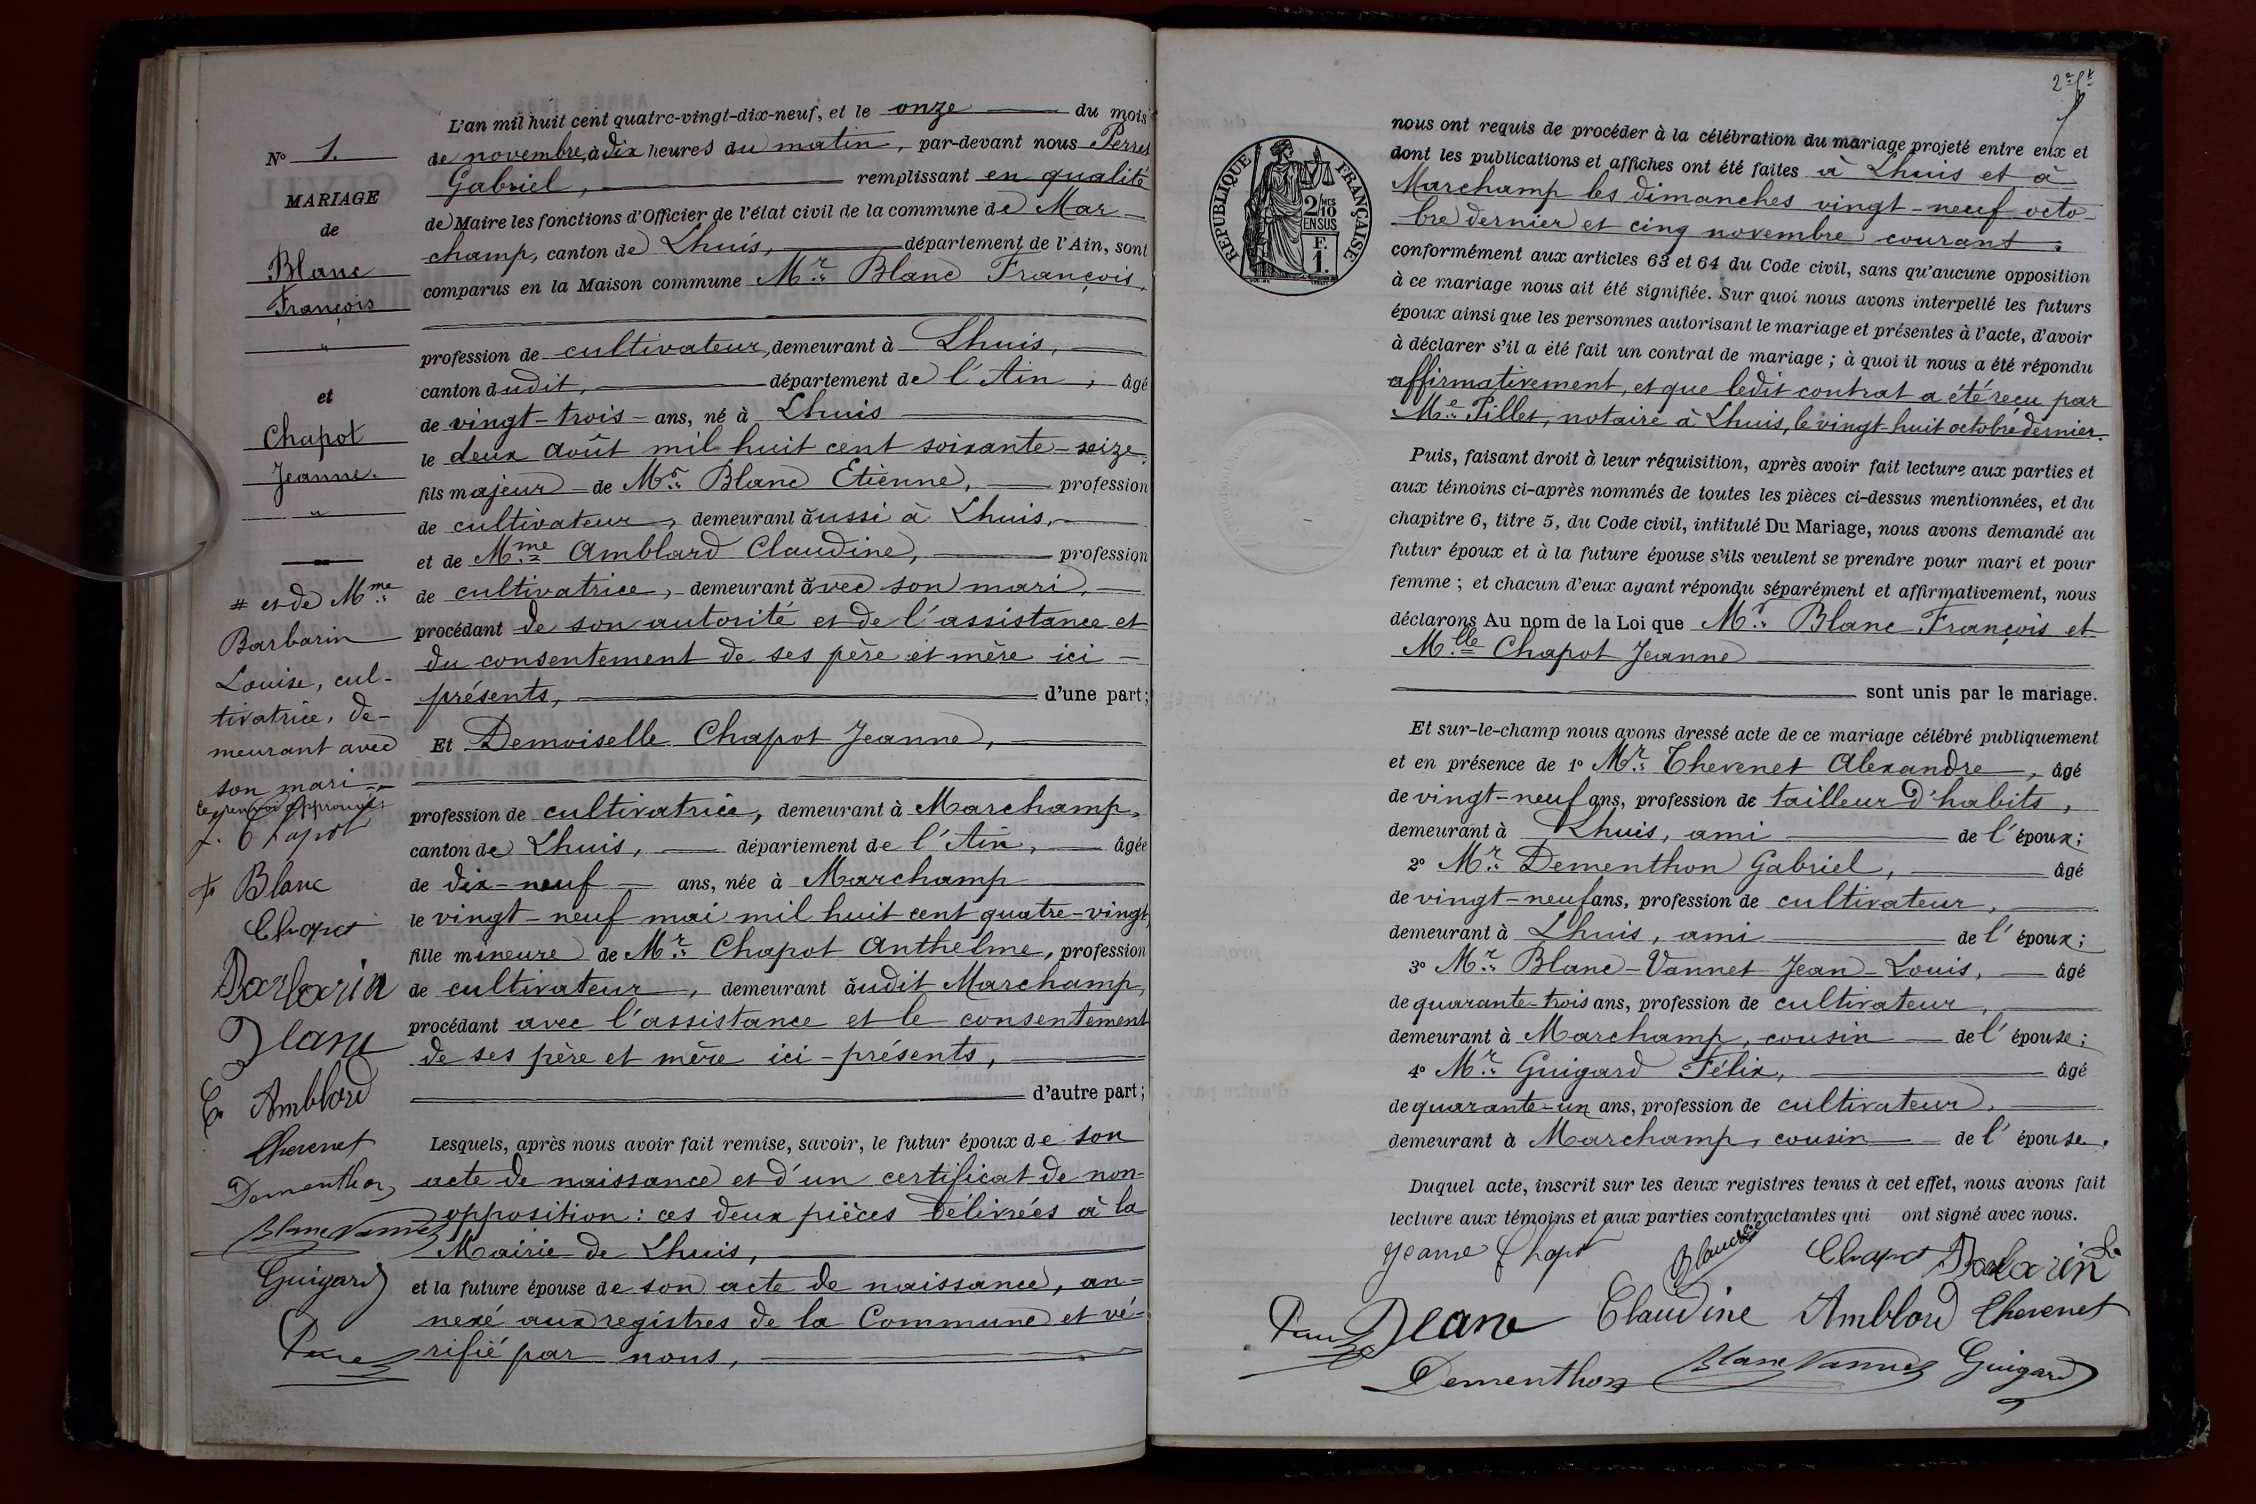 N° 1.
MARIAGE
de
Blanc
François
"
et
Chapot
Jeanne.
"
# et de Mme
Barbarin
Louise, cul-
tivatrice, de-
meurant avec
son mari
Ce renvoi approuvé:
J. Chapot
F Blanc
Chapot
Barbarin
Blanc
C. Amblard
Thevenet
Dementhon
Blanc Vannet
Guigard
L'an mil huit cent quatre-vingt-dix-neuf, et le onze du mois
de novembre, à dix heures du matin, par-devant nous Perret
Gabriel, remplissant en qualité
de Maire les fonctions d'Officier de l'état civil de la commune de Mar-
champ, canton de Lhuis, département de l'Ain, sont
comparus en la Maison commune Mr Blanc François,
profession de cultivateur, demeurant à Lhuis,
canton dudit, département de l'Ain, âgé
de vingt-trois ans, né à Lhuis
le deux août mil huit cent soixante-seize,
fils majeur de Mr Blanc Etienne, profession
de cultivateur, demeurant aussi à Lhuis,
et de Mme Amblard Claudine, profession
de cultivatrice, demeurant avec son mari,
procédant de son autorité et de l'assistance et
du consentement de ses père et mère ici-
présents, d'une part;
Et Demoiselle Chapot Jeanne,
profession de cultivatrice, demeurant à Marchamp,
canton de Lhuis, département de l'Ain, âgée
de dix-neuf ans, née à Marchamp
le vingt-neuf mai mil huit cent quatre-vingt,
fille mineure de Mr Chapot Anthelme, profession
de cultivateur, demeurant audit Marchamp,
procédant avec l'assistance et le consentement
de ses père et mère ici-présents,
d'autre part;
Lesquels, après nous avoir fait remise, savoir, le futur époux de son
acte de naissance et d'un certificat de non-
opposition: ces deux pièces délivrées à la
Mairie de Lhuis,
et la future épouse de son acte de naissance, an-
nexé aux registres de la Commune et vé-
rifié par nous,
2e ft
RÉPUBLIQUE FRANÇAISE
2/10 MES
EN SUS
F.
1.
nous ont requis de procéder à la célébration du mariage projeté entre eux et
dont les publications et affiches ont été faites à Lhuis et à
Marchamp les dimanches vingt-neuf octo-
bre dernier et cinq novembre courant.
conformément aux articles 63 et 64 du Code civil, sans qu'aucune opposition
à ce mariage nous ait été signifiée. Sur quoi nous avons interpellé les futurs
époux ainsi que les personnes autorisant le mariage et présentes à l'acte, d'avoir
à déclarer s'il a été fait un contrat de mariage; à quoi il nous a été répondu
affirmativement, et que ledit contrat a été reçu par
Me Pillet, notaire à Lhuis, le vingt-huit octobre dernier.
Puis, faisant droit à leur réquisition, après avoir fait lecture aux parties et
aux témoins ci-après nommés de toutes les pièces ci-dessus mentionnées, et du
chapitre 6, titre 5, du Code civil, intitulé Du Mariage, nous avons demandé au
futur époux et à la future épouse s'ils veulent se prendre pour mari et pour
femme; et chacun d'eux ayant répondu séparément et affirmativement, nous
déclarons Au nom de la Loi que Mr Blanc François et
Mlle Chapot Jeanne
sont unis par le mariage.
Et sur-le-champ nous avons dressé acte de ce mariage célébré publiquement
et en présence de 1° Mr Thevenet Alexandre, âgé
de vingt-neuf ans, profession de tailleur d'habits,
demeurant à Lhuis, ami de l'époux;
2° Mr Dementhon Gabriel, âgé
de vingt-neuf ans, profession de cultivateur,
demeurant à Lhuis, ami de l'époux;
3° Mr Blanc-Vannet Jean-Louis, âgé
de quarante-trois ans, profession de cultivateur,
demeurant à Marchamp, cousin de l'épouse;
4° Mr Guigard Félix, âgé
de quarante-un ans, profession de cultivateur,
demeurant à Marchamp, cousin de l'épouse.
Duquel acte, inscrit sur les deux registres tenus à cet effet, nous avons fait
lecture aux témoins et aux parties contractantes qui ont signé avec nous.
Jeanne Chapot Chapot Barbarin
Blanc Claudine Amblard Thevenet
Dementhon Blanc Vannet Guigard